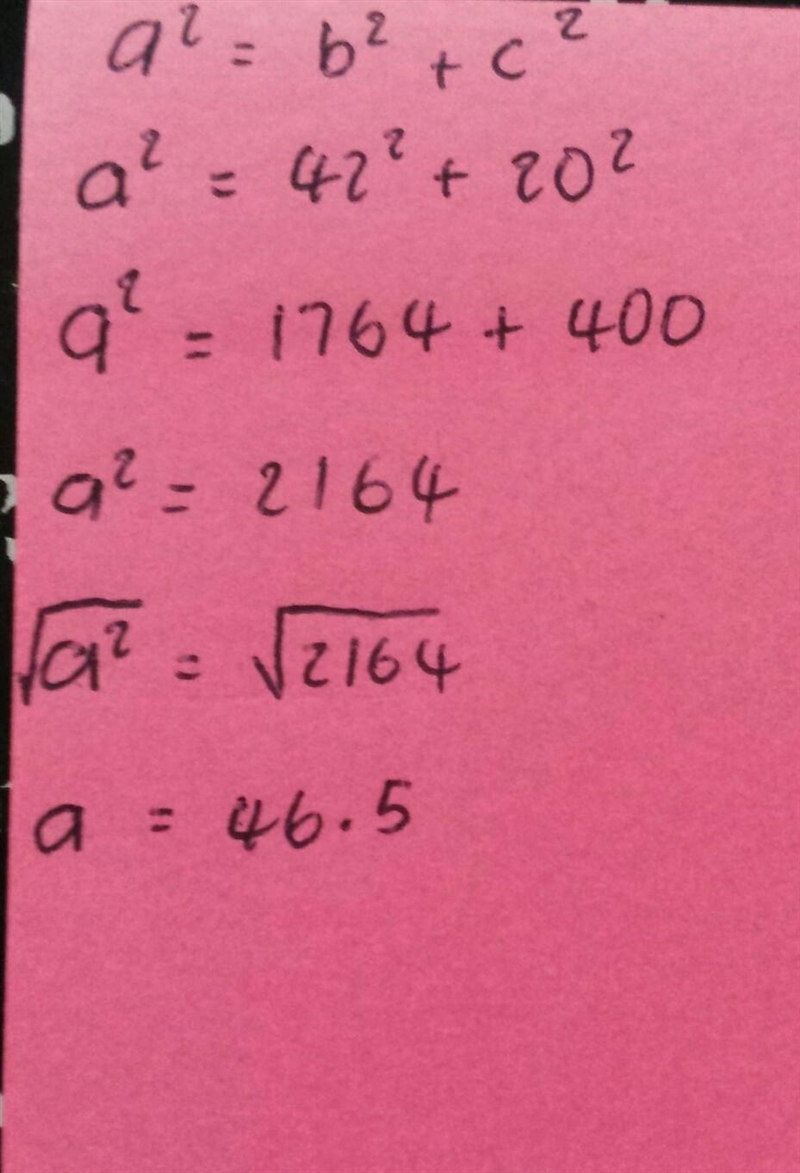 a² = b² + c²
a² = 42² + 20²
a² = 1764 + 400
a² = 2164
√a² = √2164
a = 46.5